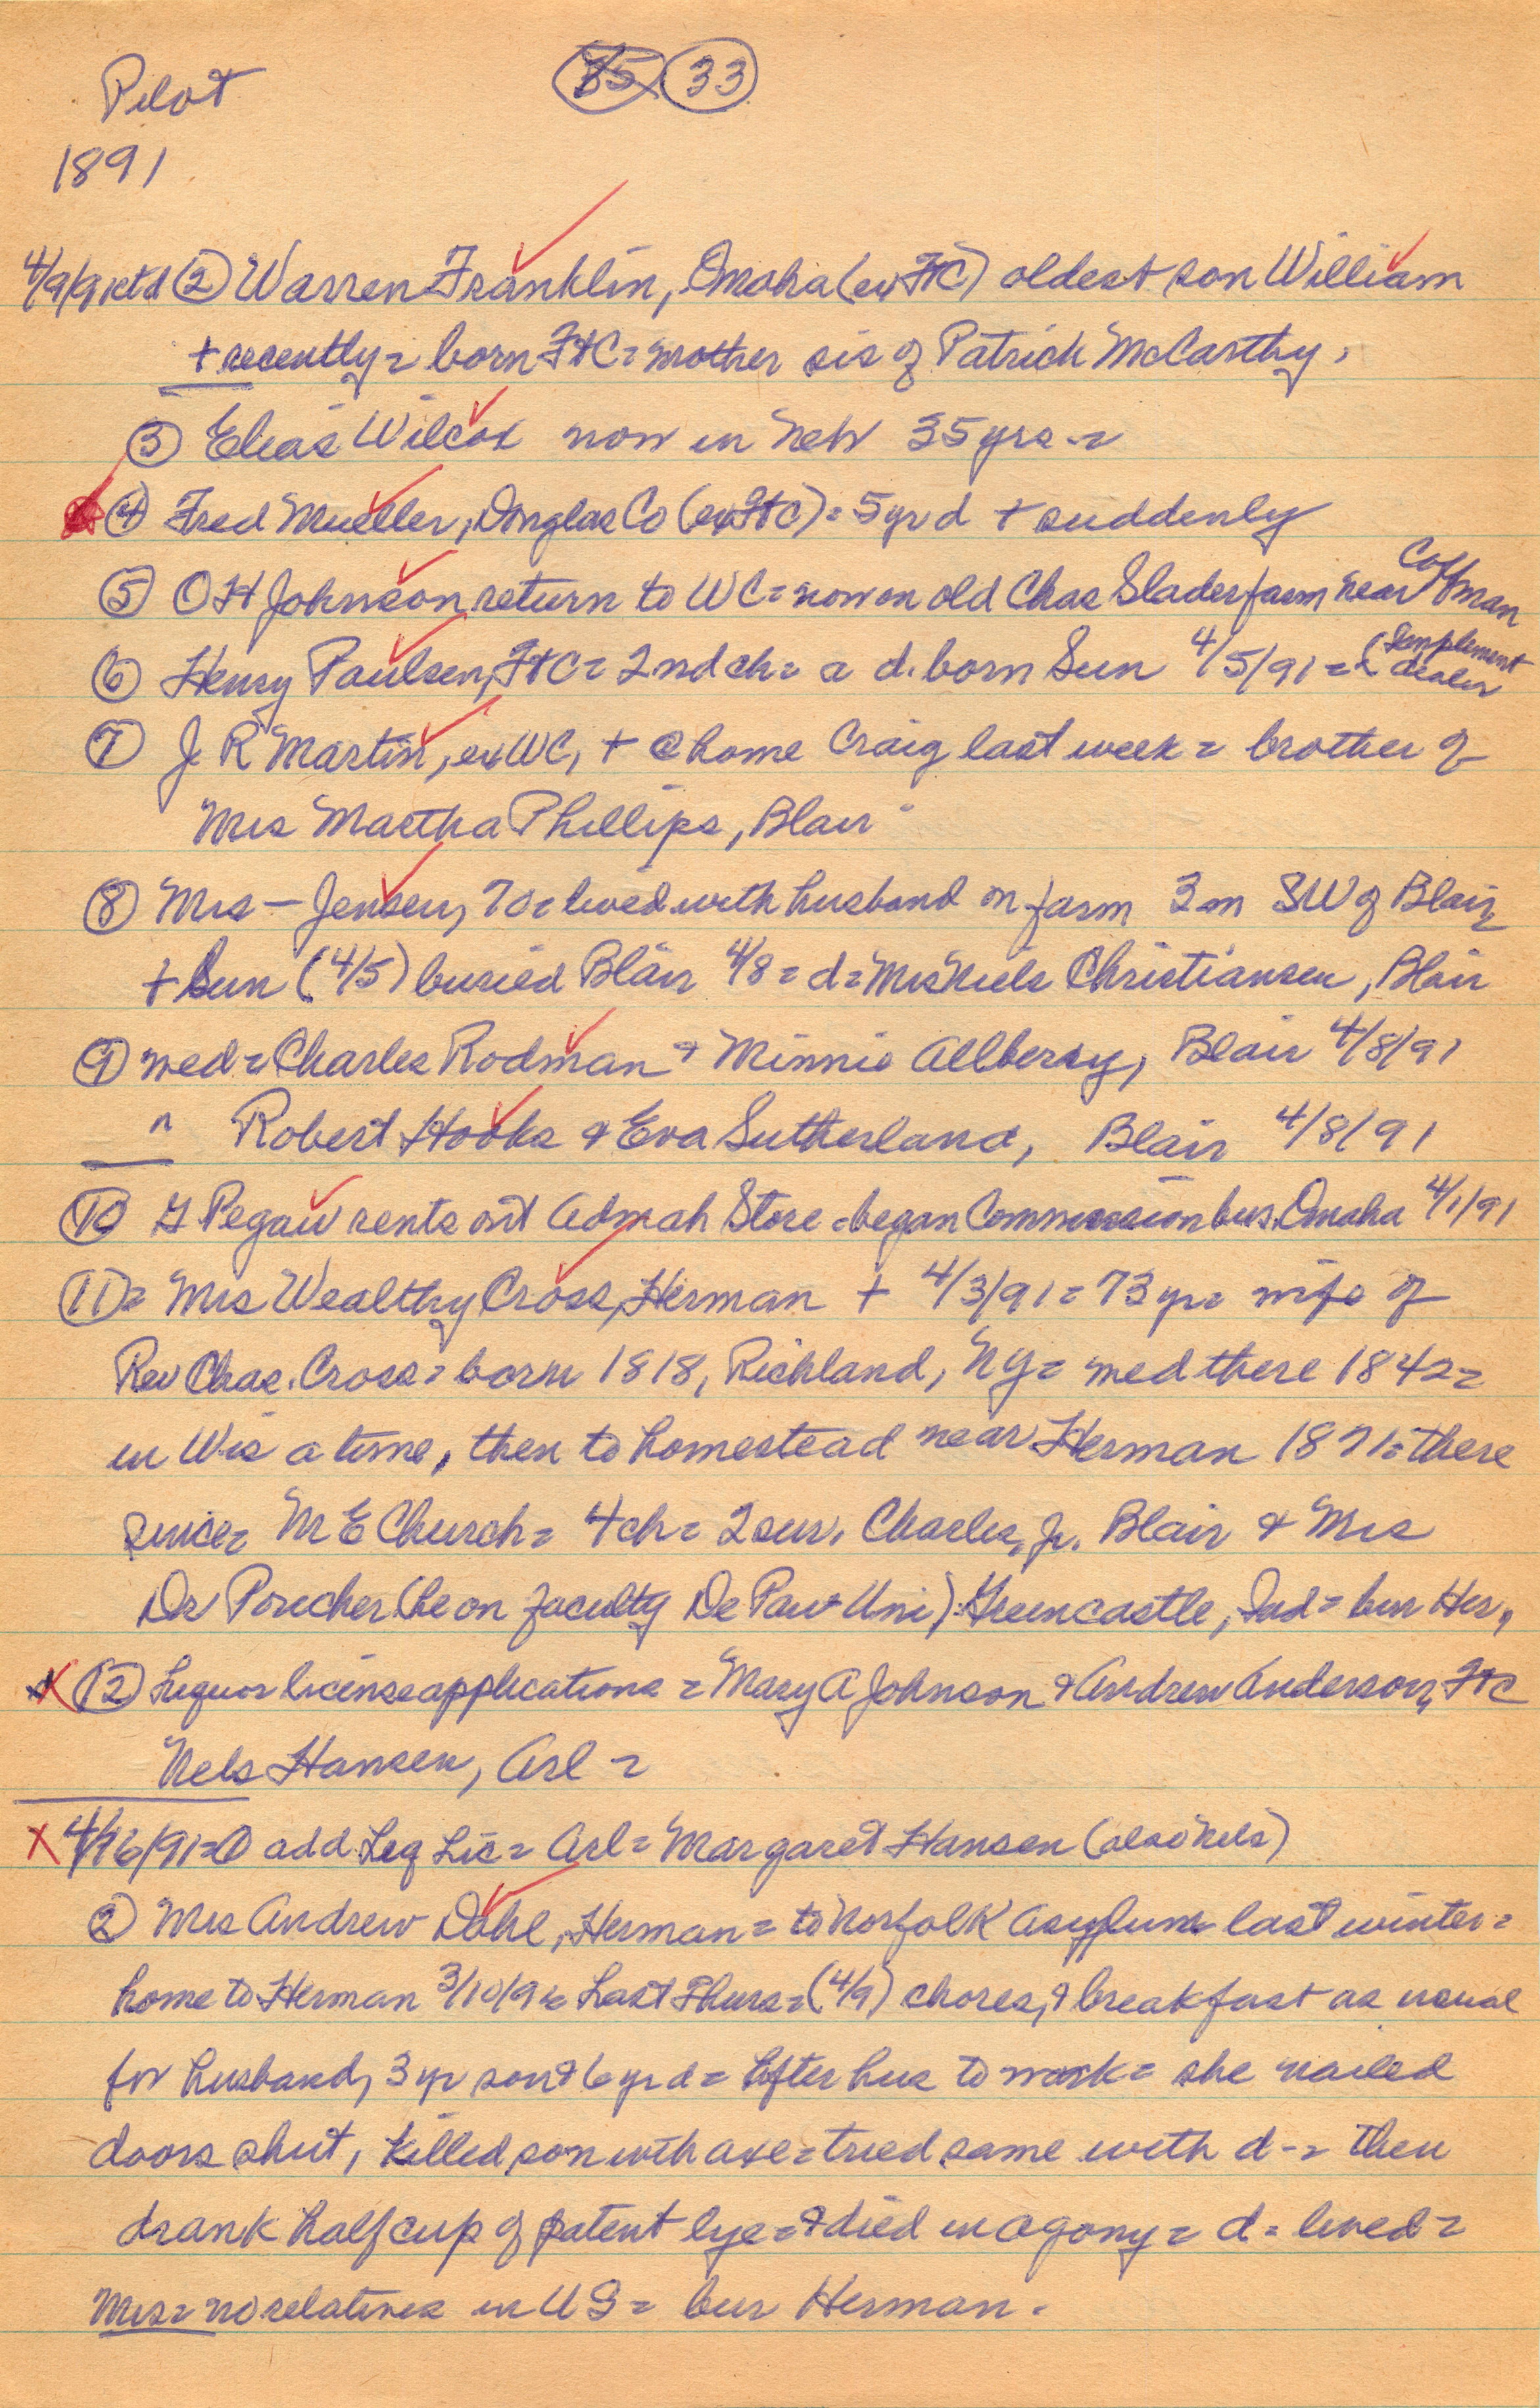 Pilot
85 33
1891
4/9/91 ctd (2) Warren Franklin, Omaha (ex FtC) oldest son William
+ recently = born FtC = mother sis of Patrick McCarthy.
(3) Elias Wilcox now in Neb 35 yrs =
(4) Fred Mueller, Douglas Co (ex FtC) = 5 yr d + suddenly
(5) O H Johnson return to WC = now on old Chas Slader farm near Coffman
(6) Henry Paulsen, FtC = 2nd ch = a d. born Sun 4/5/91 = (Implement dealer
(7) J R Martin, ex WC, + @ home Craig last week = brother of
Mrs Martha Phillips, Blair
(8) Mrs — Jensen, 70 = lived with husband on farm 3 m SW of Blair,
+ Sun (4/5) buried Blair 4/8 = d = Mrs Niels Christiansen, Blair
(9) med = Charles Rodman & Minnie Allbery, Blair 4/8/91
" Robert Hooks & Eva Sutherland, Blair 4/8/91
(10) G Pegau rents out Admah Store = began Commission bus. Omaha 4/1/91
(11) = Mrs Wealthy Cross, Herman + 4/3/91 = 73 yr = wife of
Rev Chas. Cross = born 1818, Richland, NY = med there 1842 =
in Wis a time, then to homestead near Herman 1871 = there
since = M E Church = 4 ch = 2 sur. Charles, Jr. Blair & Mrs
Dr Poucher (he on faculty De Pauw Uni) Greencastle, Ind = bur Her.
X (12) Liquor license applications = Mary A Johnson & Andrew Anderson, FtC
Nels Hansen, Arl =
X 4/16/91 = (1) add Liq Lic = Arl = Margaret Hansen (also Nels)
(2) Mrs Andrew Dahl, Herman = to Norfolk Asylum last winter =
home to Herman 3/10/91 = Last Thurs = (4/9) chores, & breakfast as usual
for husband, 3 yr son & 6 yr d = After hus to work = she nailed
doors shut, killed son with axe = tried same with d - = then
drank half cup of patent lye = & died in agony = d = lived =
Mrs = no relatives in US = bur Herman.